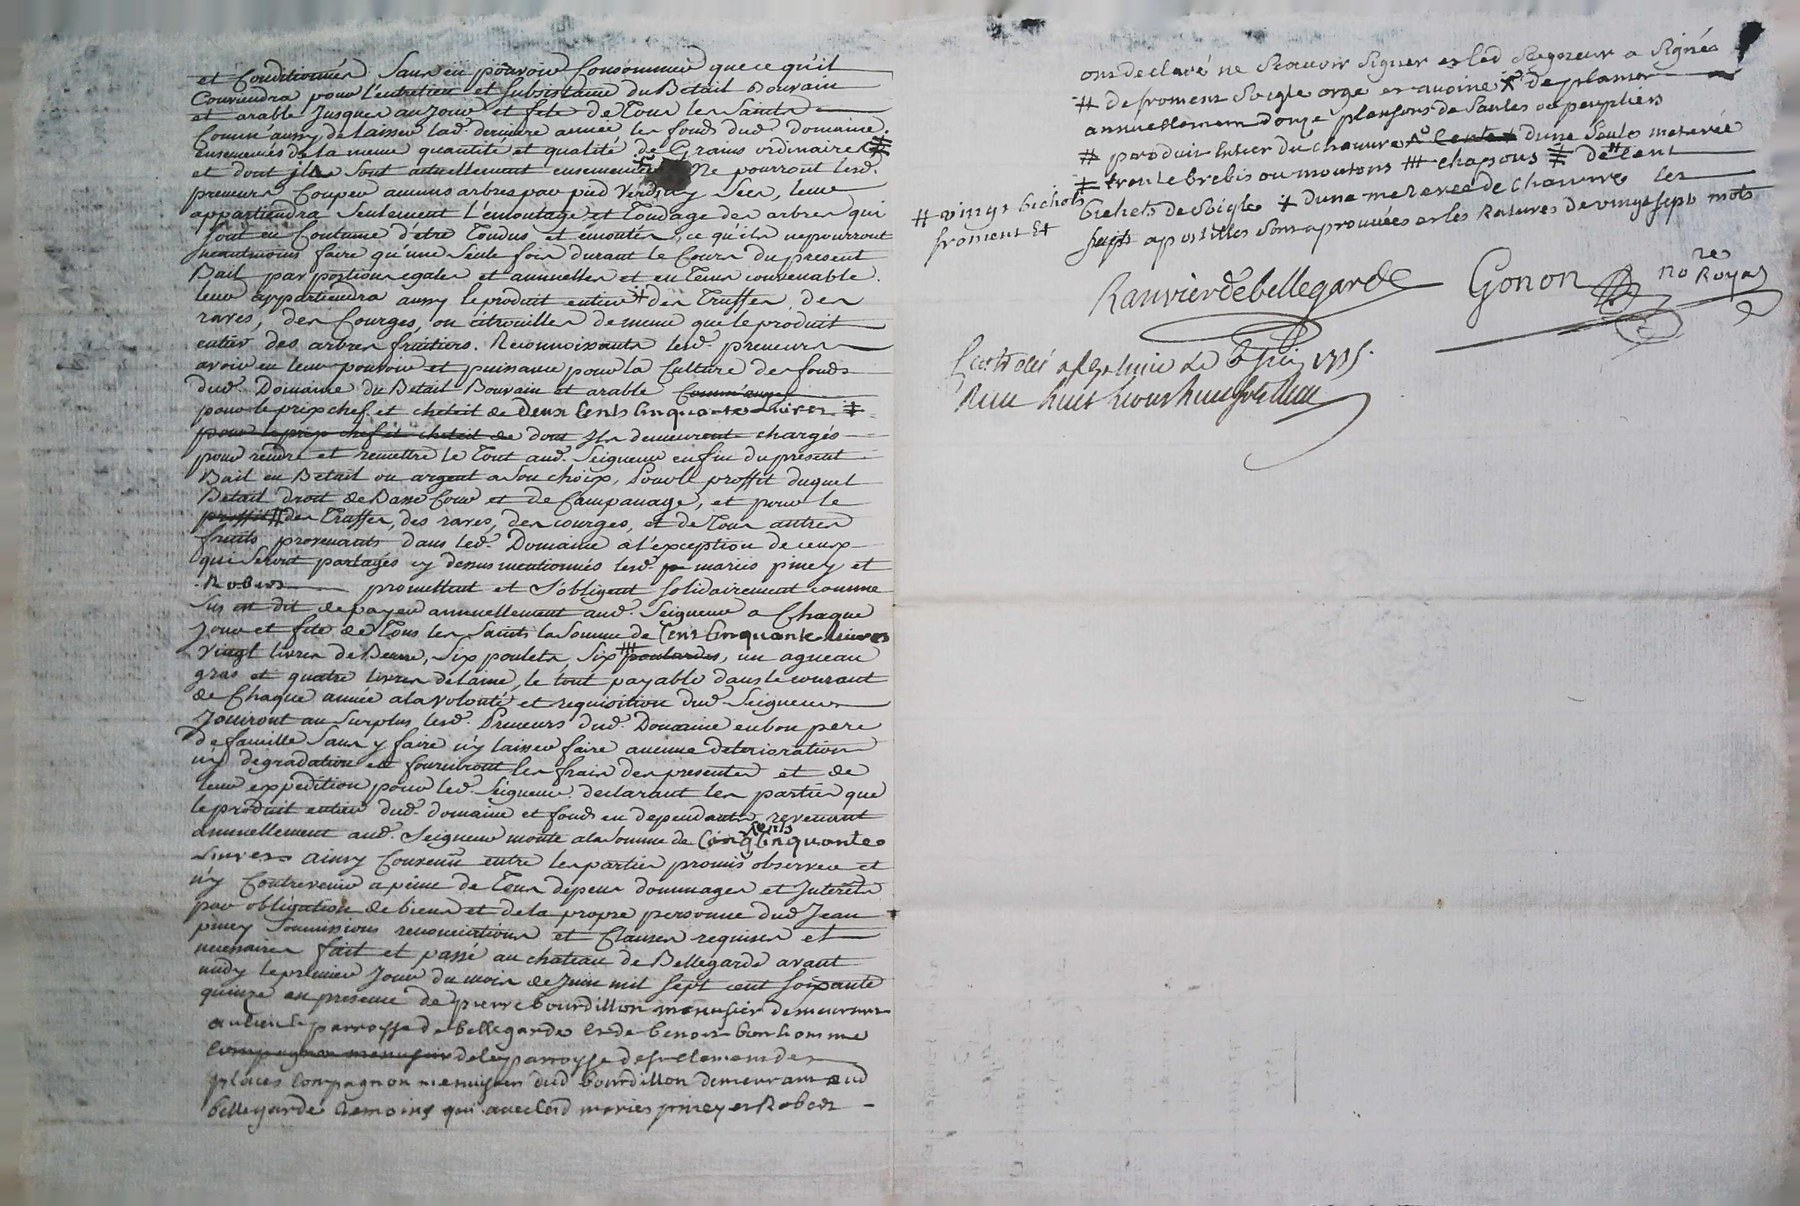 et Conditionnés Sans en pouvoir Consommer que ce qu'il
Conviendra pour l'entretien et subsistance du Betail Bouvain
et arable Jusques au Jour et fete de Tous les Saints
Comm'aussy de laisser lad. derniere année les fonds dud. domaine
ensemencés de la meme quantité et qualité de Grains ordinaire
et dont ils sont actuellement ensemencés Ne pourront lesd.
preneurs Couper aucuns arbres par pied Verd ny Sec, leur
appartiendra Seulement l'emoutage et Tondage des arbres qui
Sont en Coutume d'etre Tondus et emoutés, ce qu'ils ne pourront
neantmoins faire qu'une Seule fois durant le Cours du present
Bail par portions egales et annuelles et en Tems convenable.
leur appartiendra aussy le produit entier ‡ des Truffes, des
raves, des Courges, ou citrouilles de meme que le produit
entier des arbres fruitiers. Reconnoissants lesd. preneurs
avoir en leur pouvoir et puissance pour la Culture des fonds
dud. Domaine du Betail Bouvain et arable
pour le prix chef et cheteil de Deux Cents Cinquante livres ‡
pour le prix chef et cheteil de dont Ils demeurent chargés
pour rendre et remettre le Tout aud. Seigneur en fin du present
Bail en Betail ou argent a Son choix, Pour le proffit duquel
Betail droit de Basse Cour et de Campanage, et pour le
proffit # des Truffes, des raves, des courges, et de Tous autres
fruits provenants dans led. Domaine à l'exception de ceux
qui Seront partagés cy dessus mentionnés lesd. mariés piney et
Robert promettent et S'obligent Solidairement comme
Sus est dit de payer annuellement aud. Seigneur a Chaque
Jour et fete de Tous les Saints la Somme de Cent Cinquante livres
Vingt livres de Beurre, Six poulets, Six poulardes, un agneau
gras et quatre livres de laine, le tout payable dans le courant
de Chaque année a la volonté et requisition dud. Seigneur
Jouiront au Surplus lesd. Preneurs dud. Domaine en bon pere
de famille Sans y faire n'y laisser faire aucune deterioration
n'y degradation et fourniront les frais des presentes et de
leur expedition pour led. Seigneur declarant les parties que
le produit entier dud. domaine et fonds en dependants revenant
annuellement aud. Seigneur monte a la Somme de Cinq Cents Cinquante
Livres ainsy Convenu entre les parties promis observer et
n'y Contrevenir a peine de Tous depens dommages et Interets
par obligation de biens et de la propre personne dud. Jean
piney Soumissions renonciations et Clauses requises et
necessaires fait et passé au chateau de Bellegarde avant
midy le premier Jour du mois de Juin mil Sept cent Soixante
quinze en presence de pierre bourdillon menusier demeurant
au lieu le parroisse de bellegarde et de benoit bonhomme
Compagnon menusier de la parroysse de St Clement des
places Compagnon menusier dud bourdillon demeurant aud
bellegarde temoins qui avec lesd mariés piney et Robert
ont declaré ne Scavoir Signer et led Seigneur a Signé
# de froment Seigle orge et avoine de planter
annuellement donze plansons de Saules ou peupliers
# produit entier du chanvre dune Seule meterée
‡ trente brebis ou moutons chapons de Cent
# vingt bichets froment et
bichets de Seigle ‡ dune meterée de chanvre les
Sept apostilles Sont aprouvées et les Ratures de vingt Sept mots
Ranvier de bellegarde Gonon nore Royal